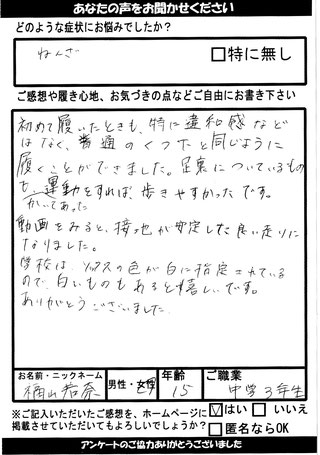 あなたの声をお聞かせください
どのような症状にお悩みでしたか?
ねんざ
□特に無し
ご感想や履き心地、お気づきの点などご自由にお書き下さい
初めて履いたときも、特に違和感など
はなく、普通のくつ下と同じように
履くことができました。足裏についているもの
も、運動をすれば、歩きやすかったです。
かいてあった
動画をみると、接地が安定した良い走りに
なりました。
学校は、ソックスの色が白に指定されている
ので、白いものもあると嬉しいです。
ありがとうございました
お名前・ニックネーム
男性・女性
年齢 15
ご職業
中学3年生
※ご記入いただいたご感想を、ホームページに
☑はい □いいえ
掲載させていただいてもよろしいでしょうか?
□匿名ならOK
アンケートのご協力ありがとうございました